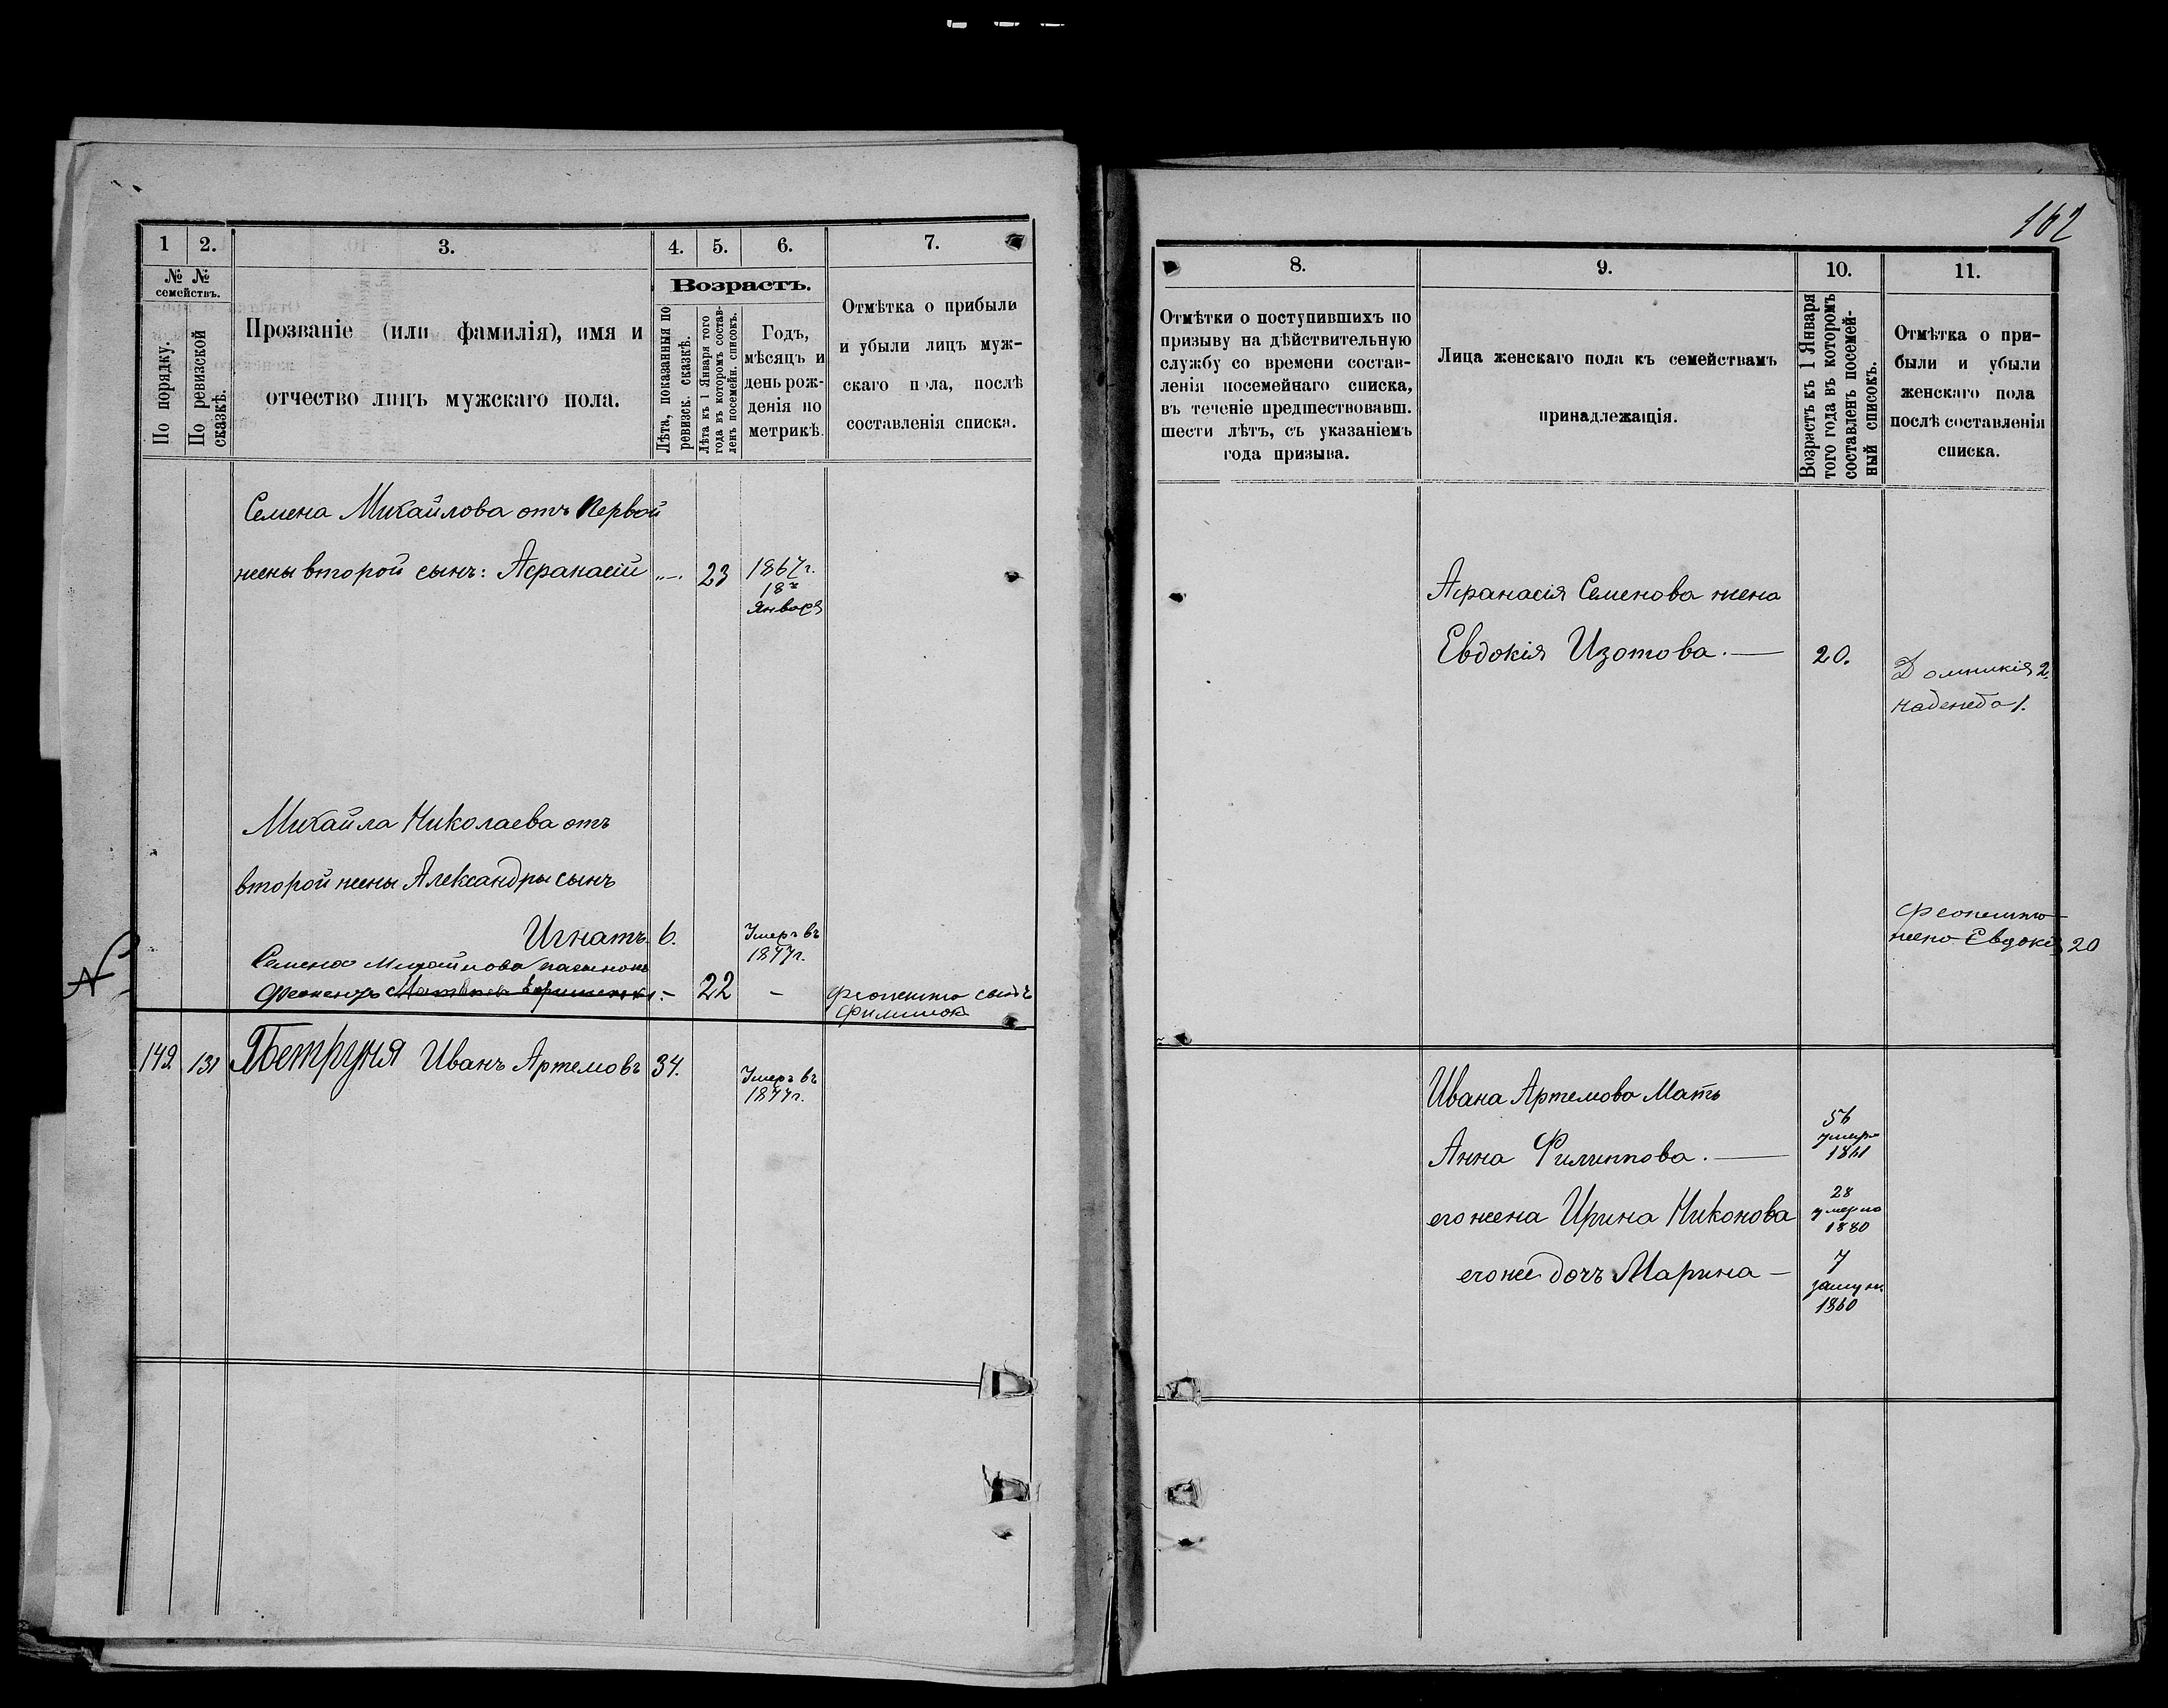 162
1
2.
3.
4.
5.
6.
7.
№ №
семействъ.
По порядку.
По ревизской
сказкѣ.
Прозваніе (или фамилія), имя и
отчество лицъ мужскаго пола.
Возрастъ.
Лѣта, показанныя по
ревизск. сказкѣ.
Лѣта къ 1 Января того
года въ которомъ состав-
ленъ посемейн. списокъ.
Годъ,
мѣсяцъ и
день рож-
денія по
метрикѣ.
Отмѣтка о прибыли
и убыли лицъ муж-
скаго пола, послѣ
составленія списка.
Семена Михайлова отъ первой
жены второй сынъ: Афанасій „—. 23 1867 г.
18го
Января
Михайла Николаева отъ
второй жены Александры сынъ
Игнатъ. 6. Умеръ въ
1877 г.
Семена Михайлова пасынокъ
22 — сынъ
149. 131 Петруня Иванъ Артемовъ 34. Умеръ въ
1877 г.
8.
9.
10.
11.
Отмѣтки о поступившихъ по
призыву на дѣйствительную
службу со времени состав-
ленія посемейнаго списка,
въ теченіе предшествовавш.
шести лѣтъ, съ указаніемъ
года призыва.
Лица женскаго пола къ семействамъ
принадлежащія.
Возрастъ къ 1 Января
того года въ которомъ
составленъ посемей-
ный списокъ.
Отмѣтка о при-
были и убыли
женскаго пола
послѣ составленія
списка.
Афанасія Семенова жена
Евдокія Изотова. — 20.
Домникія 2.
Надежда 1.
жена Евдокія 20
Ивана Артемова Мать
Анна Филиппова. — 56
умерла
1861
его жена Ирина Никонова 28
умерла
1880
его же дочь Марина — 7
замуж.
1860